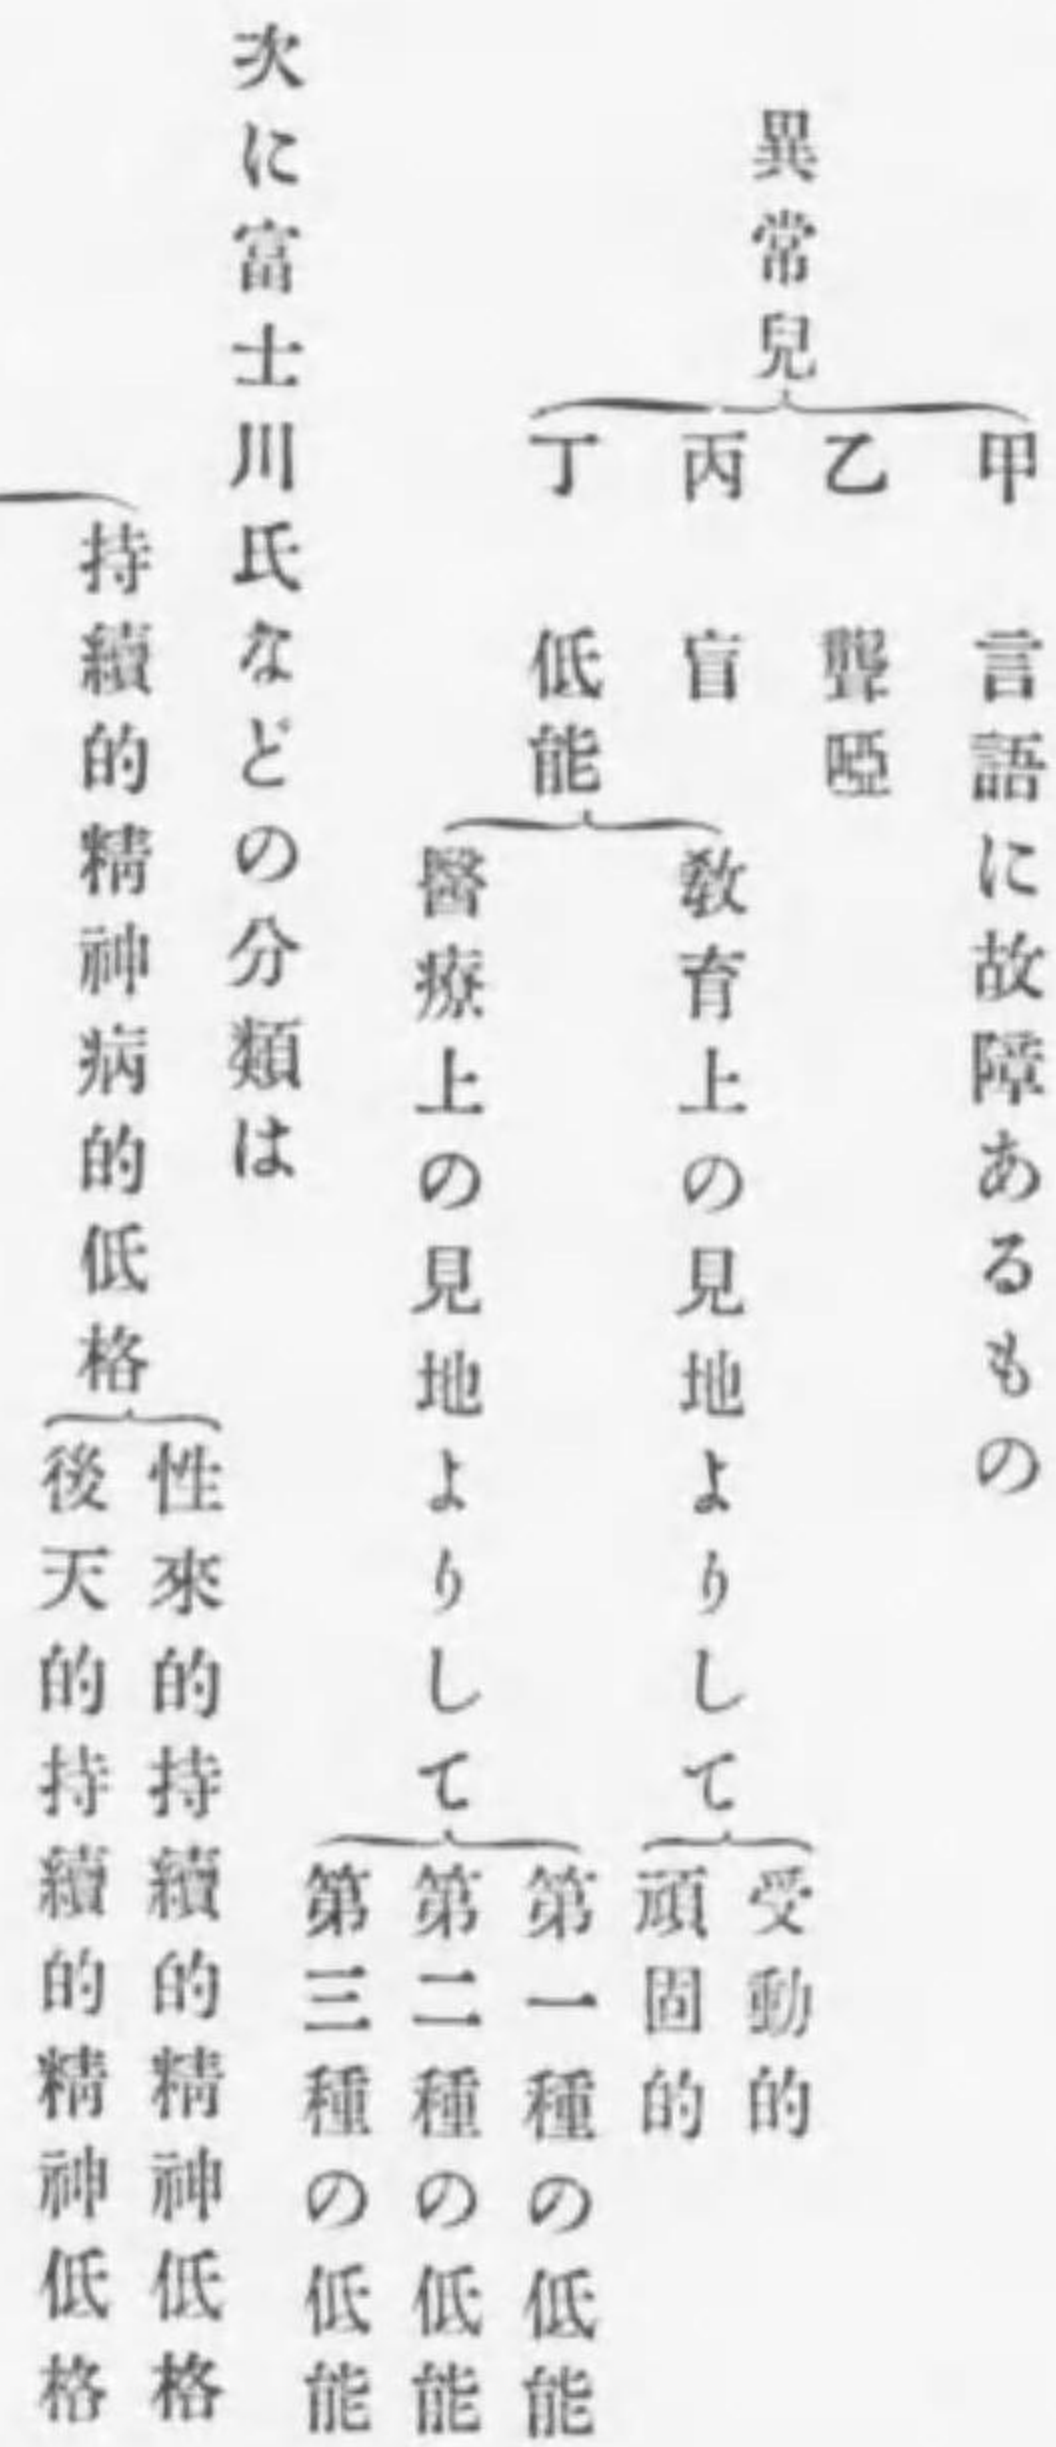 異常兒
甲　言語に故障あるもの
乙　聾啞
丙　盲
丁　低能
敎育上の見地よりして
受動的
頑固的
醫療上の見地よりして
第一種の低能
第二種の低能
第三種の低能
次に富士川氏などの分類は
持續的精神病的低格
性來的持續的精神低格
後天的持續的精神低格